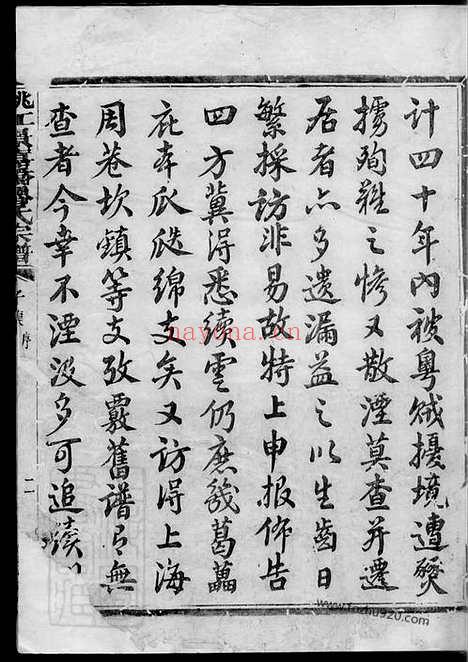 計四十年內被粵贼擾境遭燹
擄殉難之慘又散湮莫查并遷
居者亦多遺漏益之以生齒日
繁採訪非易故特上申報佈告
四方冀得悉續雲仍庶幾葛藟
庇本瓜瓞綿支矣又訪得上海
周巷坎鎮等支攷覈舊譜無
查者今幸不湮没多可追續
姚江氏宗譜
二
nayona.cn
www.fozhu920.com